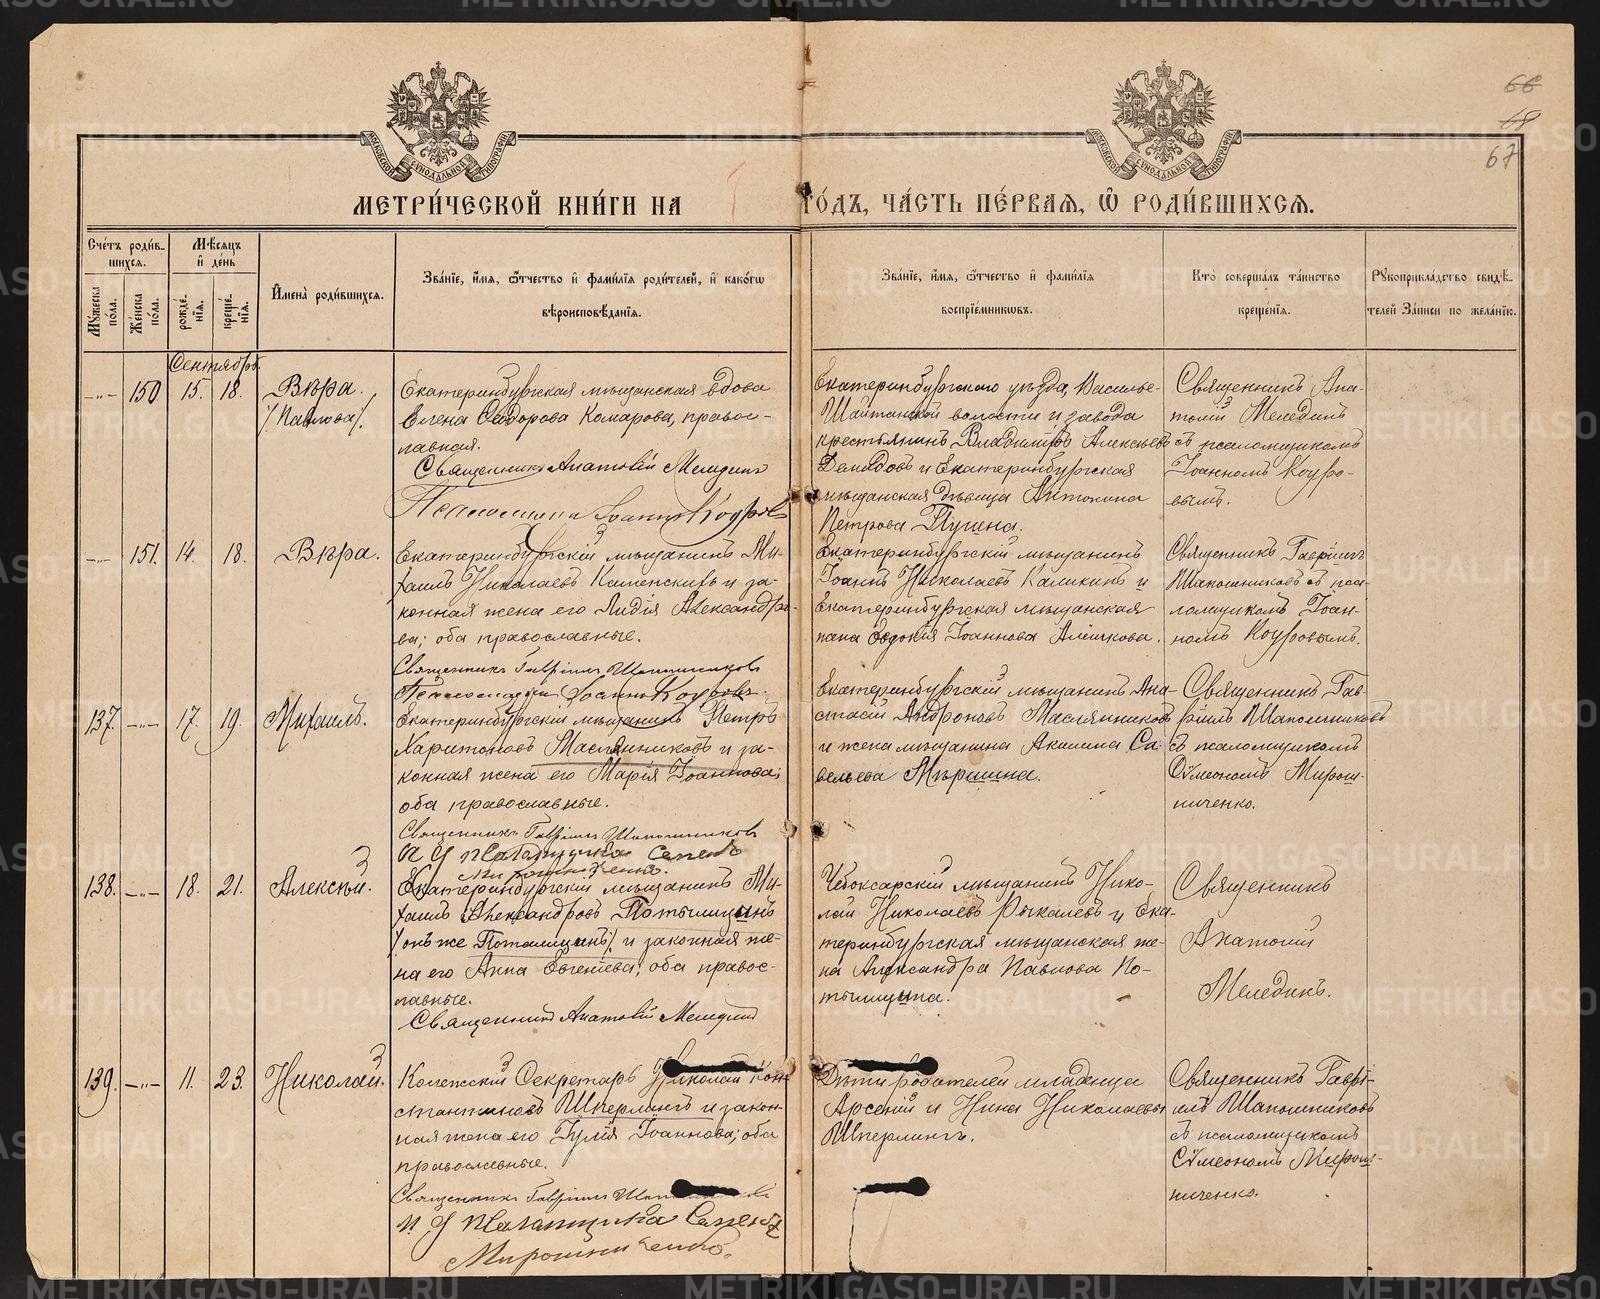 66
67
МЕТРИ́ЧЕСКОЙ КНИ́ГИ НА ГО́ДЪ, ЧА́СТЬ ПЕ́РВАЯ, Ѡ РОДИ́ВШИХСЯ.
Сче́тъ роди́в-
шихся.
Мꙋ́жеска по́ла.
Же́нска по́ла.
Мѣ́сяцъ
и҆ де́нь
рожде́нїя.
креще́нїя.
И҆мена̀ роди́вшихся.
Зва́нїе, и҆́мя, ѻ҆́тчество и҆ фами́лїя роди́телей, и҆ како́гѡ
вѣроисповѣ́данїя.
Зва́нїе, и҆́мя, ѻ҆́тчество и҆ фами́лїя
воспрїе́мникѡвъ.
Кто̀ соверша́лъ та́инство
креще́нїя.
Рꙋкоприкла́дство свидѣ́-
телей за́писи по жела́нїю.
Сентябрь.
-„- 150. 15. 18. Вѣра.
/Павлова/.
Екатеринбургская мѣщанская вдова
Елена Ѳедорова Комарова, правос-
лавная.
Священникъ Анатолій Мелединъ
Псаломщикъ Іоаннъ Коуровъ
Екатеринбургскаго уѣзда, Василье-
Шайтанской волости и завода
крестьянинъ Владиміръ Алексѣевъ
Демидовъ и Екатеринбургская
мѣщанская дѣвица Антонина
Петрова Пугина.
Священникъ Ана-
толій Мелединъ
съ псаломщикомъ
Іоанномъ Коуро-
вымъ.
-„- 151. 14. 18. Вѣра.
Екатеринбургскій мѣщанинъ Ми-
хаилъ Николаевъ Каменскихъ и за-
конная жена его Лидія Александро-
ва; оба православные.
Священникъ Гавріилъ Шапошниковъ
Псаломщикъ Іоаннъ Коуровъ.
Екатеринбургскій мѣщанинъ
Іоаннъ Николаевъ Каликинъ и
Екатеринбургская мѣщанская
жена Евдокія Іоаннова Алешкова.
Священникъ Гавріилъ
Шапошниковъ съ пса-
ломщикомъ Іоан-
номъ Коуровымъ.
137. -„- 17. 19. Михаилъ.
Екатеринбургскій мѣщанинъ Петръ
Харитоновъ Маслянниковъ и за-
конная жена его Марія Іоаннова;
оба православные.
Священникъ Гавріилъ Шапошниковъ
И У псаломщика Семенъ
Мирошниченко.
Екатеринбургскій мѣщанинъ Ана-
стасій Андроновъ Маслянниковъ
и жена мѣщанина Акилина Са-
вельева Мѣршина.
Священникъ Гав-
ріилъ Шапошниковъ
съ псаломщикомъ
Сѵмеономъ Мирош-
ниченко.
138. -„- 18. 21. Алексѣй.
Екатеринбургскій мѣщанинъ Ми-
хаилъ Александровъ Потылицынъ
/онъ же Поталицынъ/ и законная же-
на его Анна Евгеніева; оба правос-
лавные.
Священникъ Анатолій Мелединъ
Чебоксарскій мѣщанинъ Нико-
лай Николаевъ Рыкалевъ и Ека-
теринбургская мѣщанская же-
на Александра Павлова По-
тылицына.
Священникъ
Анатолій
Мелединъ.
139. -„- 11. 23. Николай.
Коллежскій Секретарь Николай Кон-
стантиновъ Шперлингъ и закон-
ная жена его Гулія Іоаннова; оба
православные.
Священникъ Гавріилъ
И. У псаломщика Семенъ
Мирошниченко.
Дѣти родителей младенца
Арсеній и Нина Николаевы
Шперлингъ.
Священникъ Гаврі-
илъ Шапошниковъ
съ псаломщикомъ
Сѵмеономъ Мирош-
ниченко.
METRIKI.GASO-URAL.RU